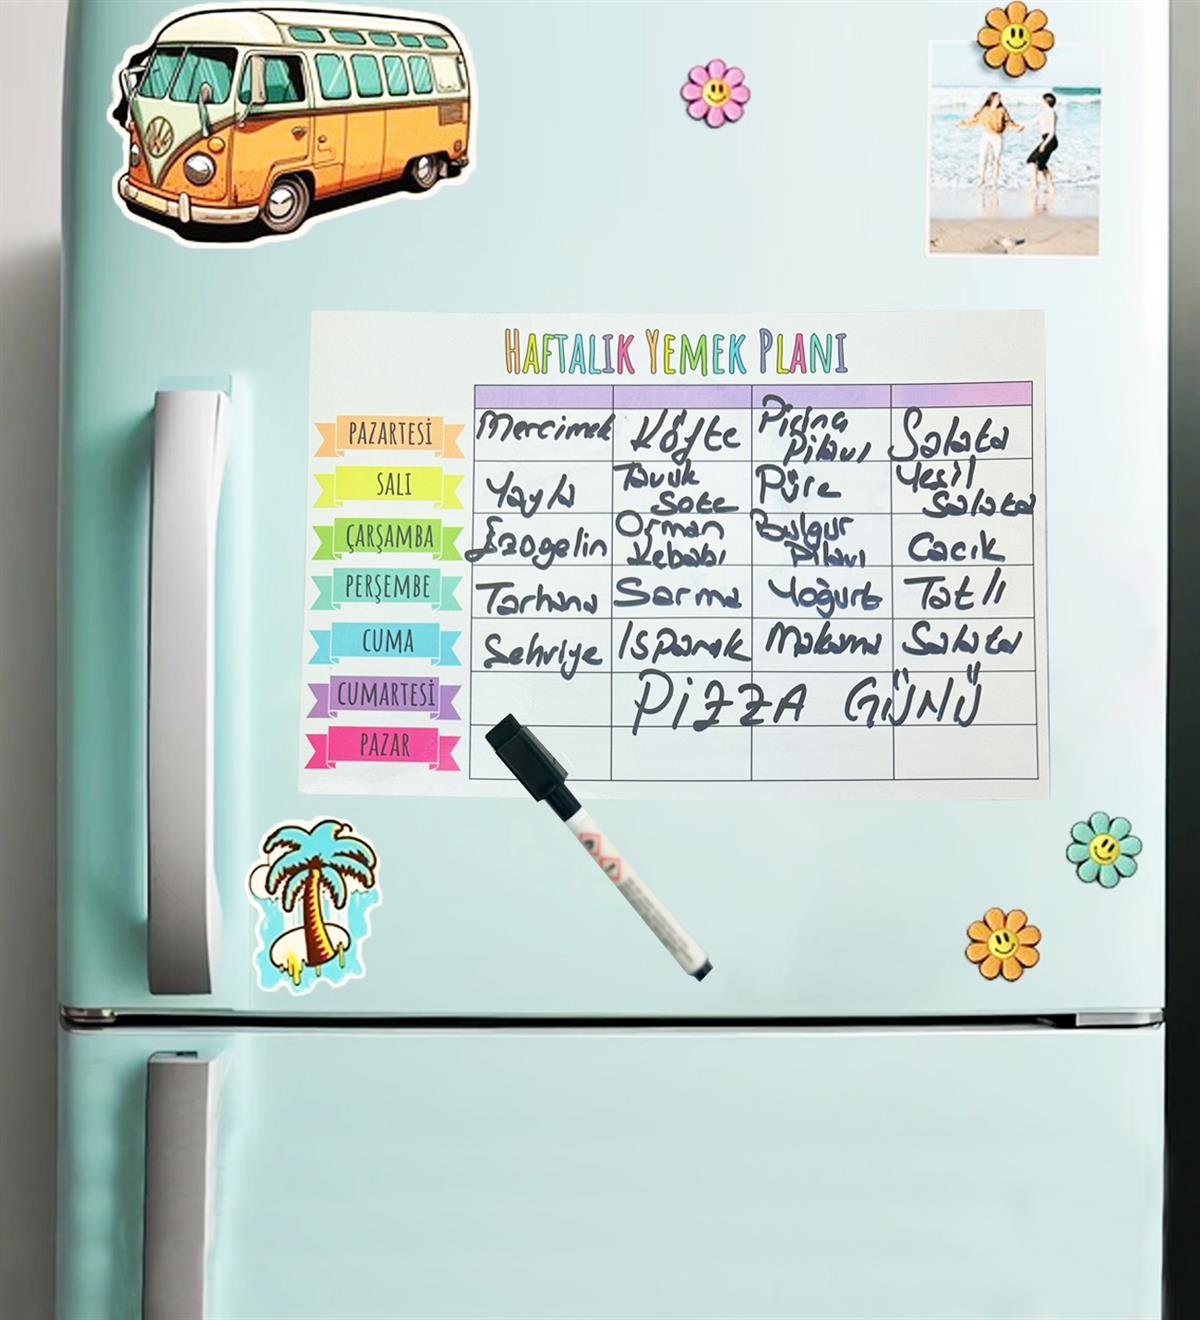 HAFTALIK YEMEK PLANI
PAZARTESİ Mercimek Köfte Pirinç Pilavı Salata
SALI Yayla Tavuk Sote Püre Yeşil Salata
ÇARŞAMBA Ezogelin Orman Kebabı Bulgur Pilavı Cacık
PERŞEMBE Tarhana Sarma Yoğurt Tatlı
CUMA Şehriye Ispanak Makarna Salata
CUMARTESİ PİZZA GÜNÜ
PAZAR